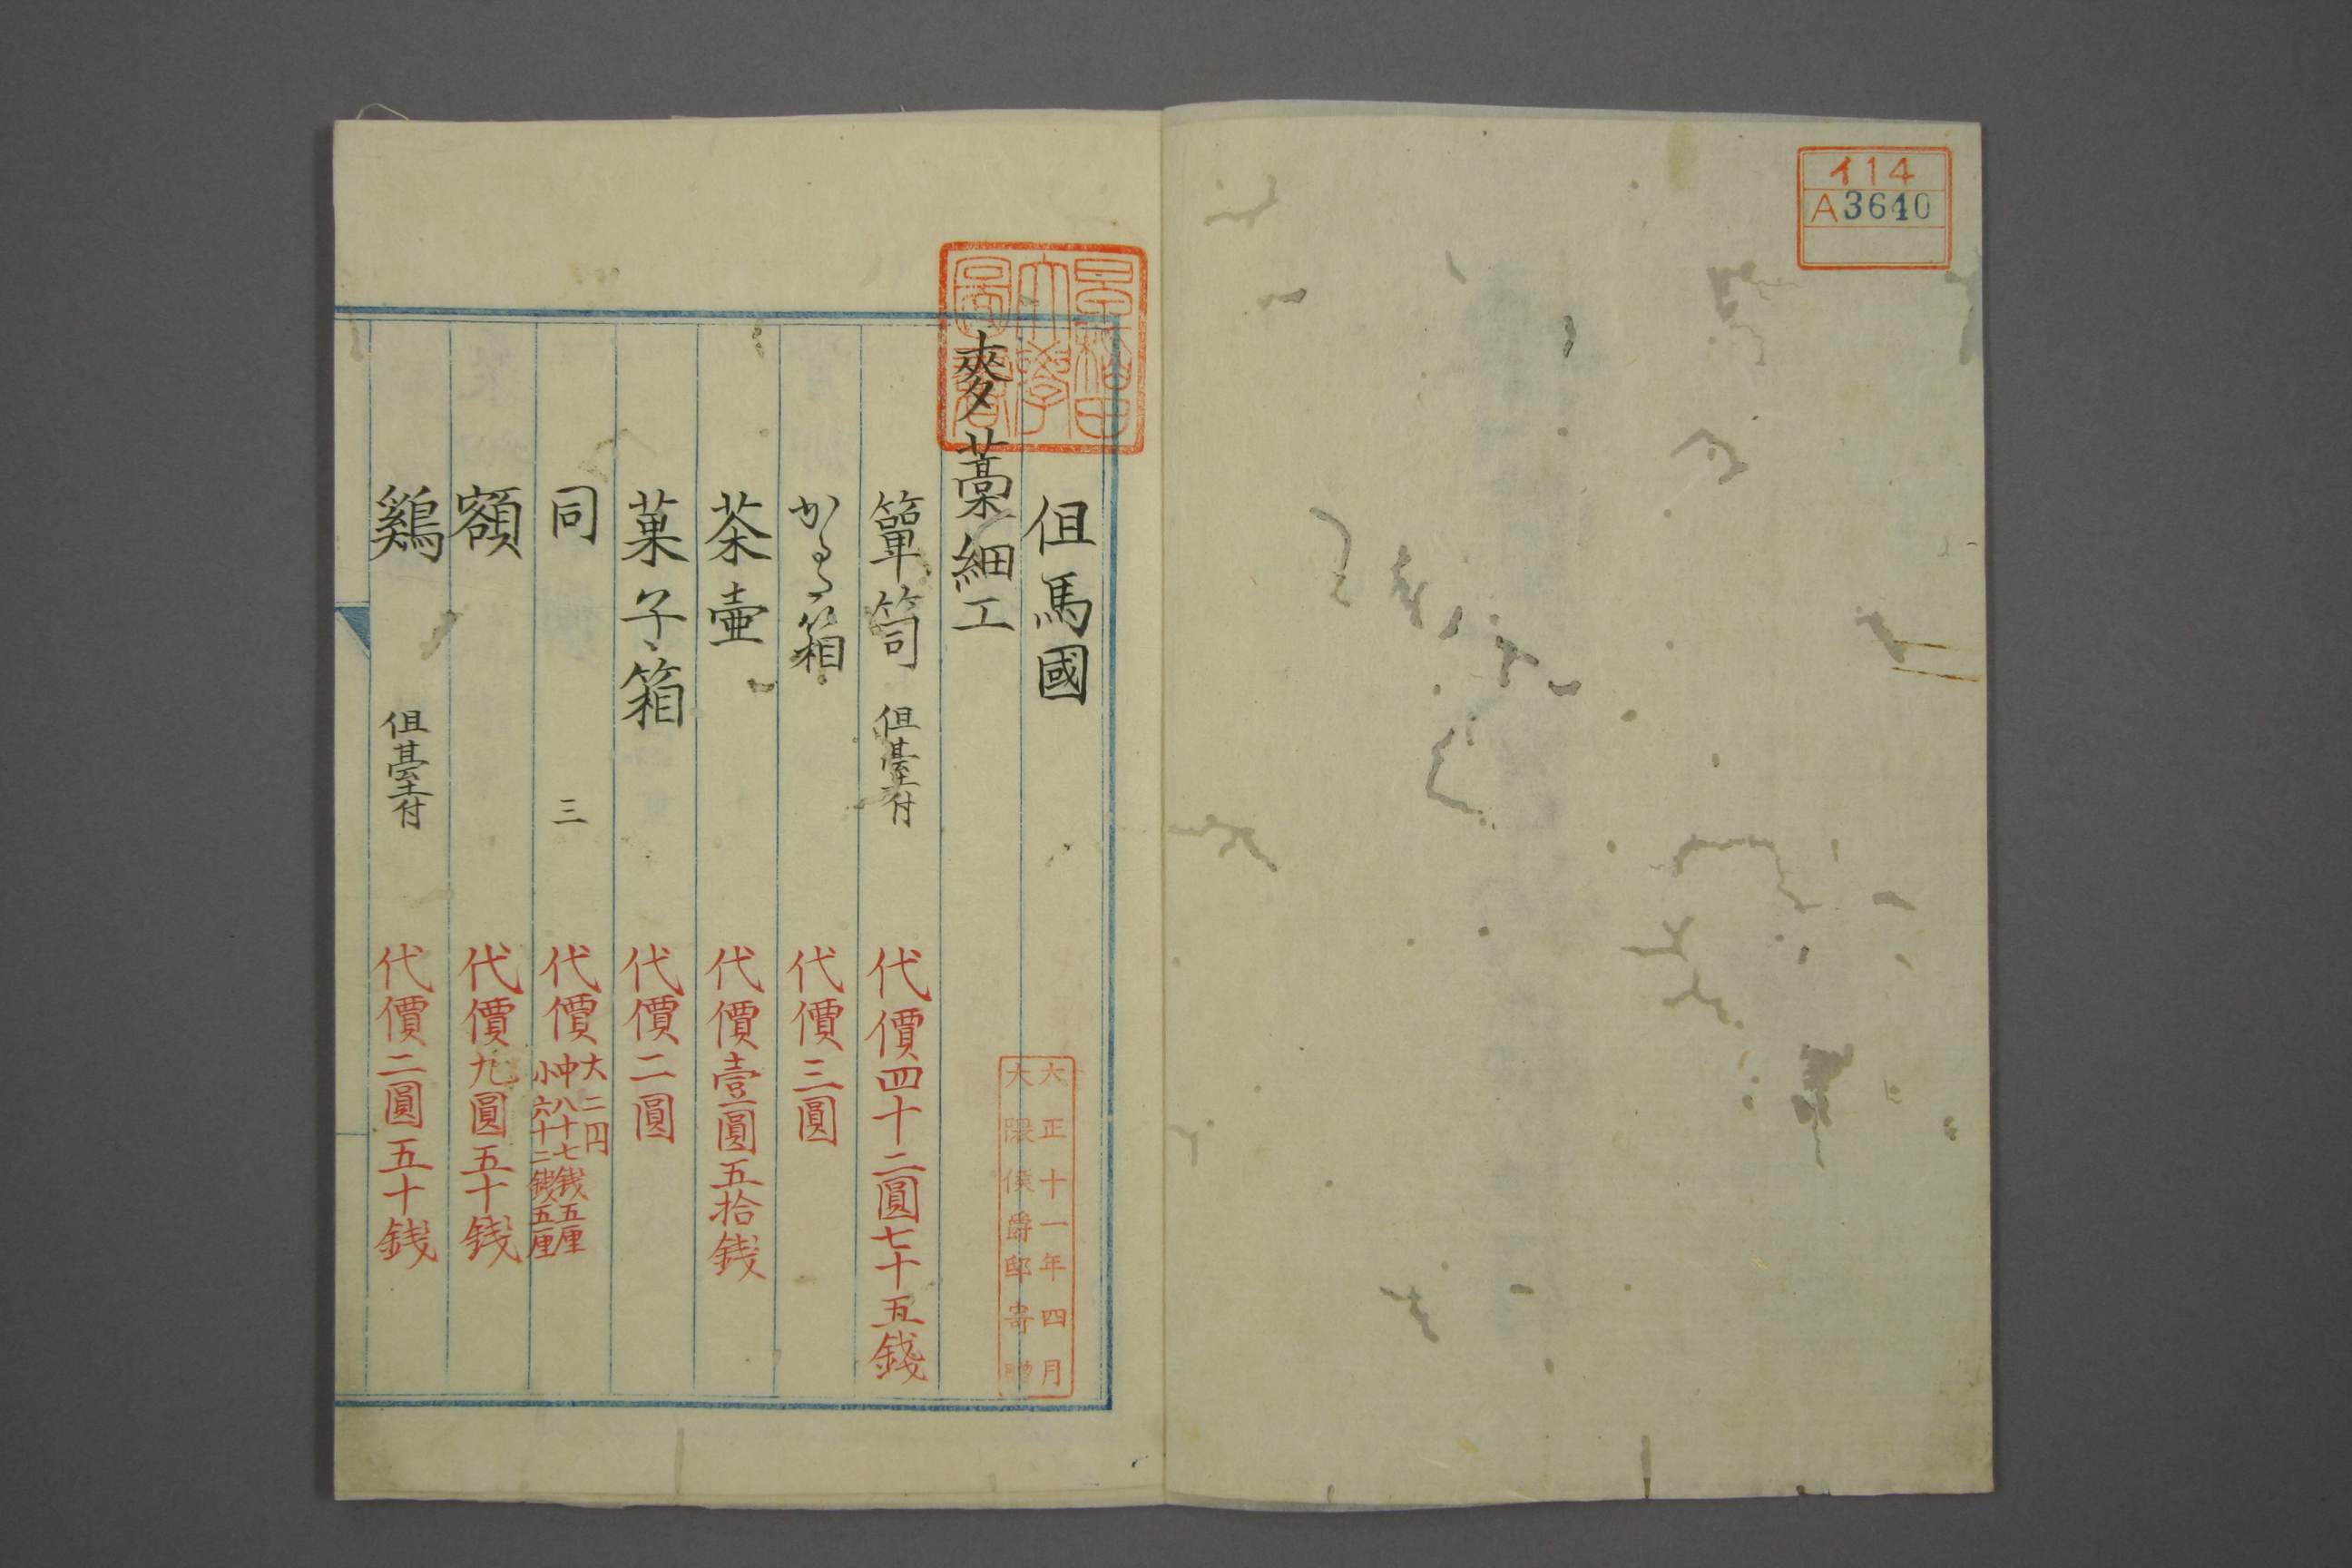 イ14
A3640
早稲田
大學
圖書
大正十一年四月
大隈侯爵邸寄贈
但馬國
麥藁細工
簞笥 但臺付 代價四十二圓七十五錢
かるた箱 代價三圓
茶壷 代價壹圓五拾錢
菓子箱 代價二圓
同 三 代價 大二円 中八十七銭五厘 小六十二銭五厘
額 代價九圓五十錢
鷄 但臺付 代價二圓五十錢